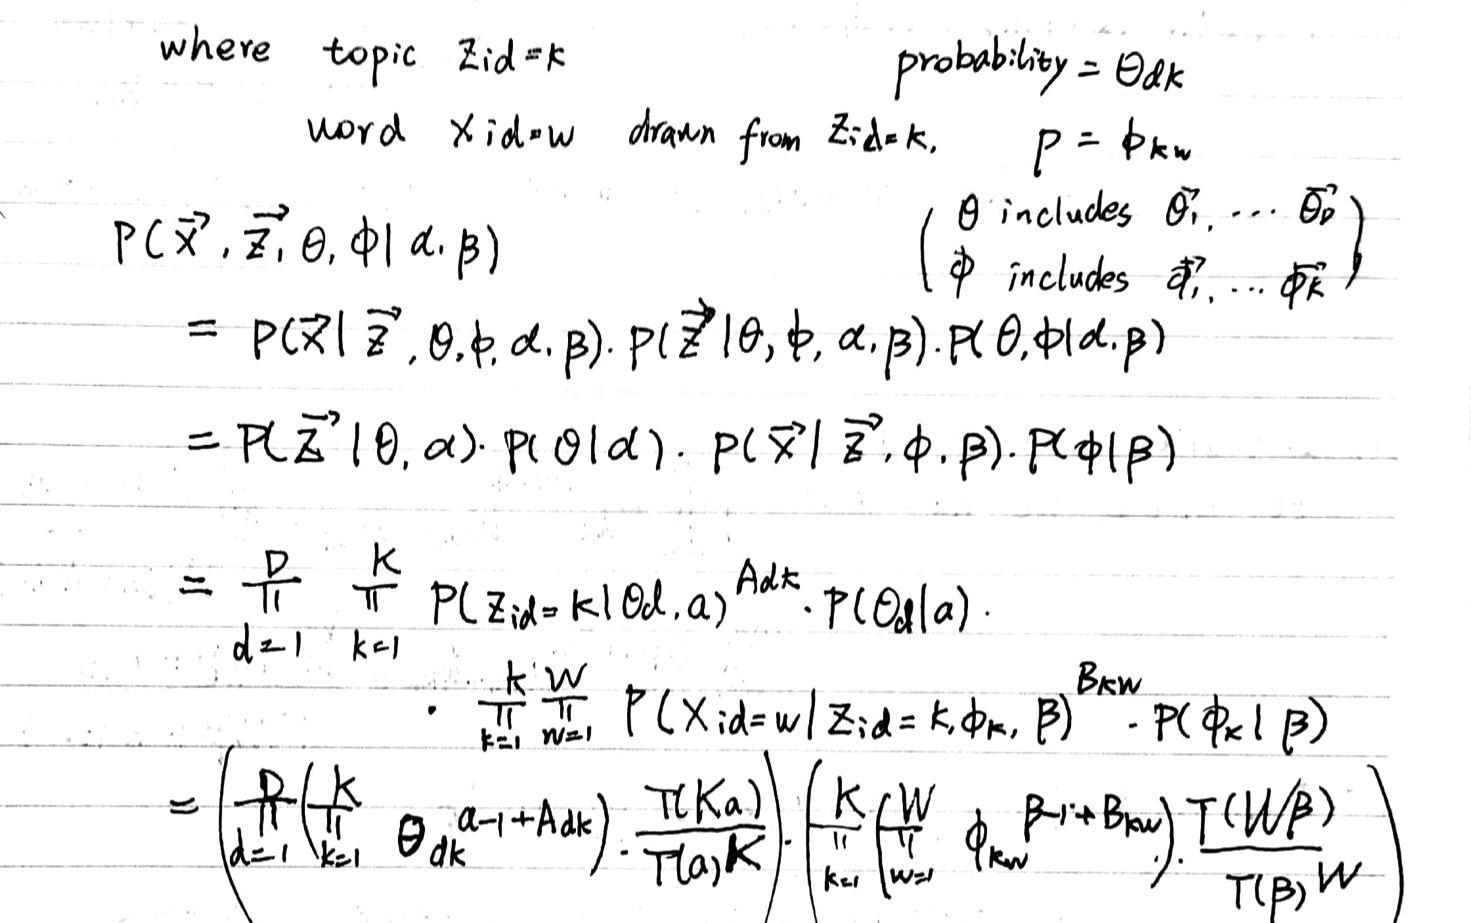 where topic Zid=k probability = θdk
word Xid=w drawn from Zid=k, p = ϕkw
P(X⃗, Z⃗, θ, ϕ | α, β) (θ includes θ⃗1, ... θ⃗D
ϕ includes ϕ⃗1, ... ϕ⃗K)
= P(X⃗ | Z⃗, θ, ϕ, α, β) · P(Z⃗ | θ, ϕ, α, β) · P(θ, ϕ | α, β)
= P(Z⃗ | θ, α) · P(θ | α) · P(X⃗ | Z⃗, ϕ, β) · P(ϕ | β)
= ∏_{d=1}^{D} ∏_{k=1}^{K} P(Zid=k | θd, a)^{Adk} · P(θd | a) ·
· ∏_{k=1}^{K} ∏_{w=1}^{W} P(Xid=w | Zid=k, ϕk, β)^{Bkw} · P(ϕk | β)
= (∏_{d=1}^{D} (∏_{k=1}^{K} θdk^{a-1+Adk}) · Γ(Ka)/Γ(a)^K) · (∏_{k=1}^{K} (∏_{w=1}^{W} ϕkw^{β-1+Bkw}) · Γ(Wβ)/Γ(β)^W)